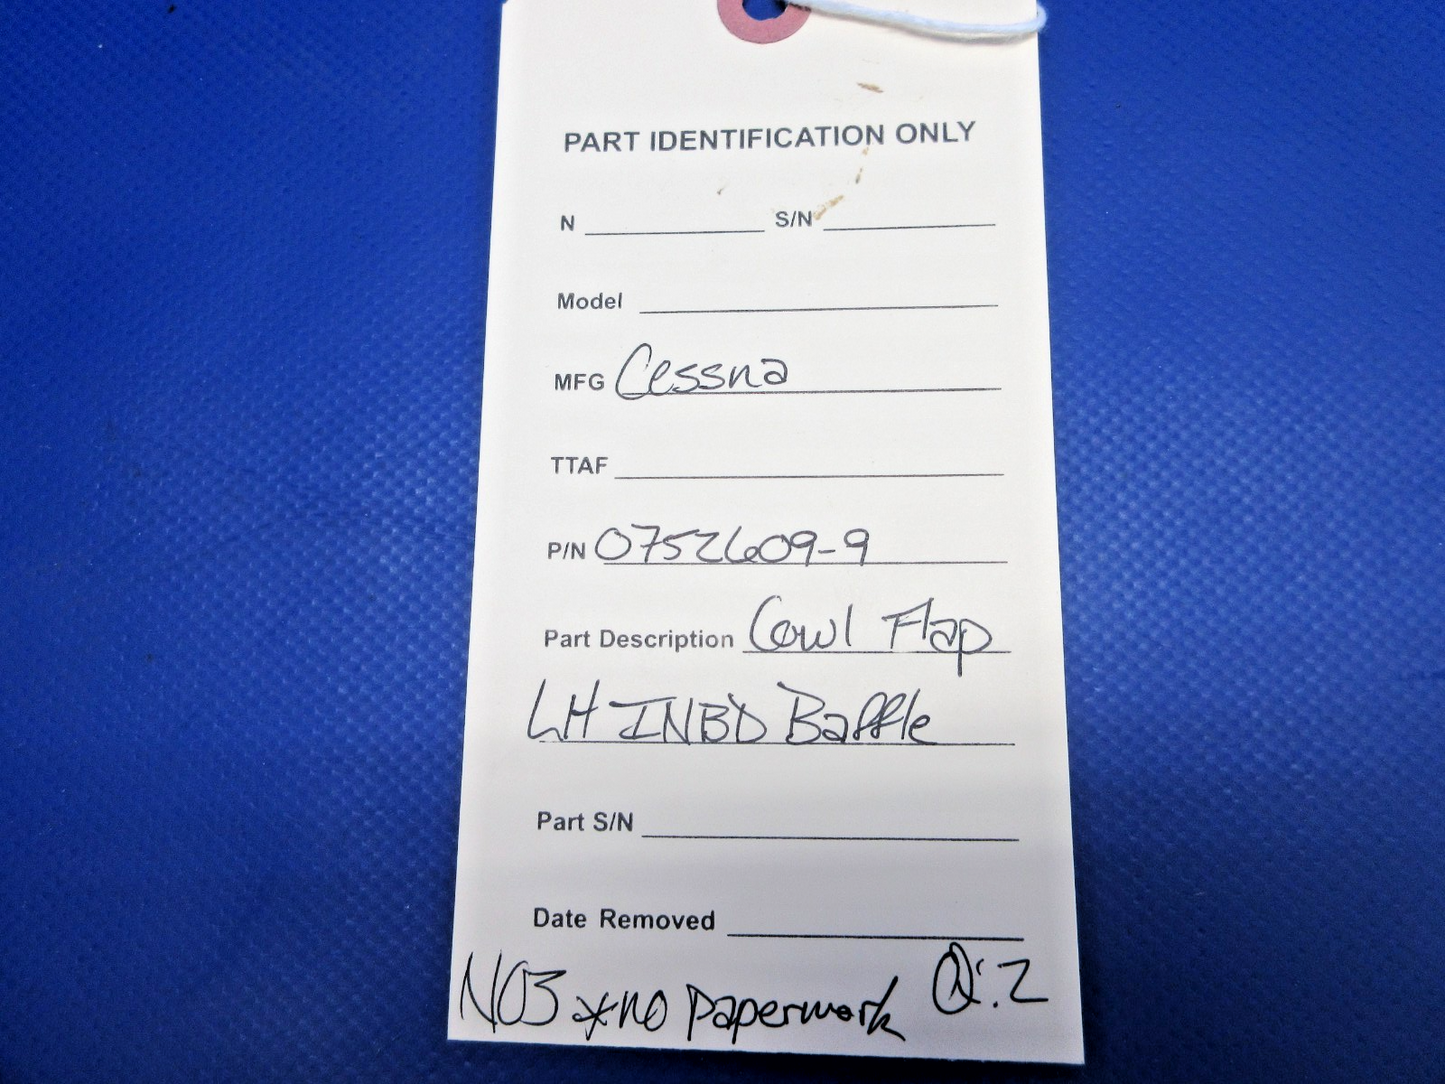 PART IDENTIFICATION ONLY
N S/N
Model
MFG Cessna
TTAF
P/N 0752609-9
Part Description Cowl Flap
LH INBD Baffle
Part S/N
Date Removed
NO3 *no paperwork Q:2